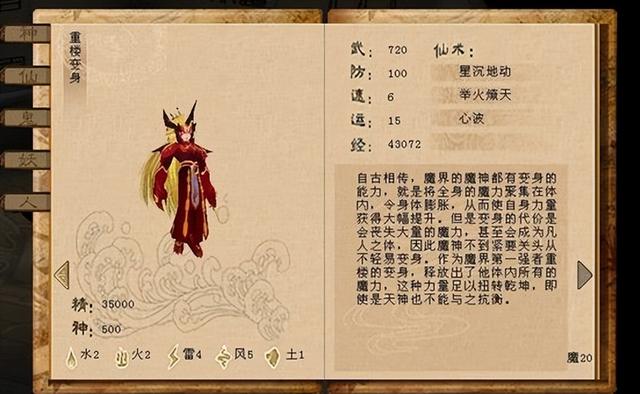 神
仙
鬼
妖
人
重楼变身
精：35000
神：500
水2 火2 雷4 风5 土1
武：720
防：100
速：6
运：15
经：43072
仙术：
星沉地动
举火燎天
心波
自古相传，魔界的魔神都有变身的
能力，就是将全身的魔力聚集在体
内，令身体膨胀，从而使自身力量
获得大幅提升。但是变身的代价是
会丧失大量的魔力，甚至会成为凡
人之体，因此魔神不到紧要关头从
不轻易变身。作为魔界第一强者重
楼的变身，释放出了他体内所有的
魔力，这种力量足以扭转乾坤，即
使是天神也不能与之抗衡。
魔20